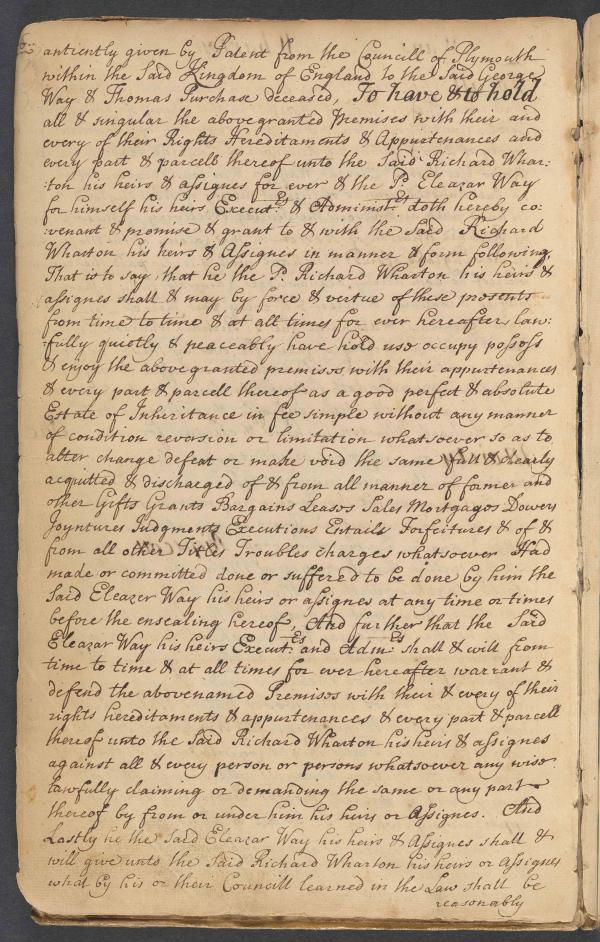 antiently given by Patent from the Councill of Plymouth
within the Said Kingdom of England to the Said George
Way & Thomas Purchase deceased, To have & to hold
all & singular the above granted Premises with their and
every of their Rights Hereditaments & Appurtenances and
every part & parcell thereof unto the Said Richard Whar:
:ton his heirs & assignes for ever & the P. Eleazar Way
for himself his heirs Execut.rs & Administ.rs doth hereby co:
:venant & promise & grant to & with the Said Richard
Wharton his heirs & Assignes in manner & form following,
That is to say, that he the P. Richard Wharton his heirs &
assignes shall & may by force & vertue of these presents
from time to time & at all times for ever hereafter law:
:fully quietly & peaceably have hold use occupy possess
& enjoy the above granted premises with their appurtenances
& every part & parcell thereof as a good perfect & absolute
Estate of Inheritance in fee simple without any manner
of condition reversion or limitation whatsoever so as to
alter change defeat or make void the same full & clearly
acquitted & discharged of & from all manner of former and
other Gifts Grants Bargains Leases Sales Mortgages Dowers
Joyntures Judgments Executions Entails Forfeitures & of &
from all other Titles Troubles charges whatsoever Had
made or committed done or suffered to be done by him the
Said Eleazer Way his heirs or assignes at any time or times
before the ensealing hereof, And further that the Said
Eleazar Way his heirs Execut.rs and Adm.rs shall & will from
time to time & at all times for ever hereafter warrant &
defend the abovenamed Premises with their & every of their
rights hereditaments & appurtenances & every part & parcell
thereof unto the Said Richard Wharton his heirs & assignes
against all & every person or persons whatsoever any wise
lawfully claiming or demanding the same or any part
thereof by from or under him his heirs or Assignes. And
Lastly he the Said Eleazar Way his heirs & Assignes shall &
will give unto the Said Richard Wharton his heirs or assignes
what by his or their Councill learned in the Law shall be
reasonably